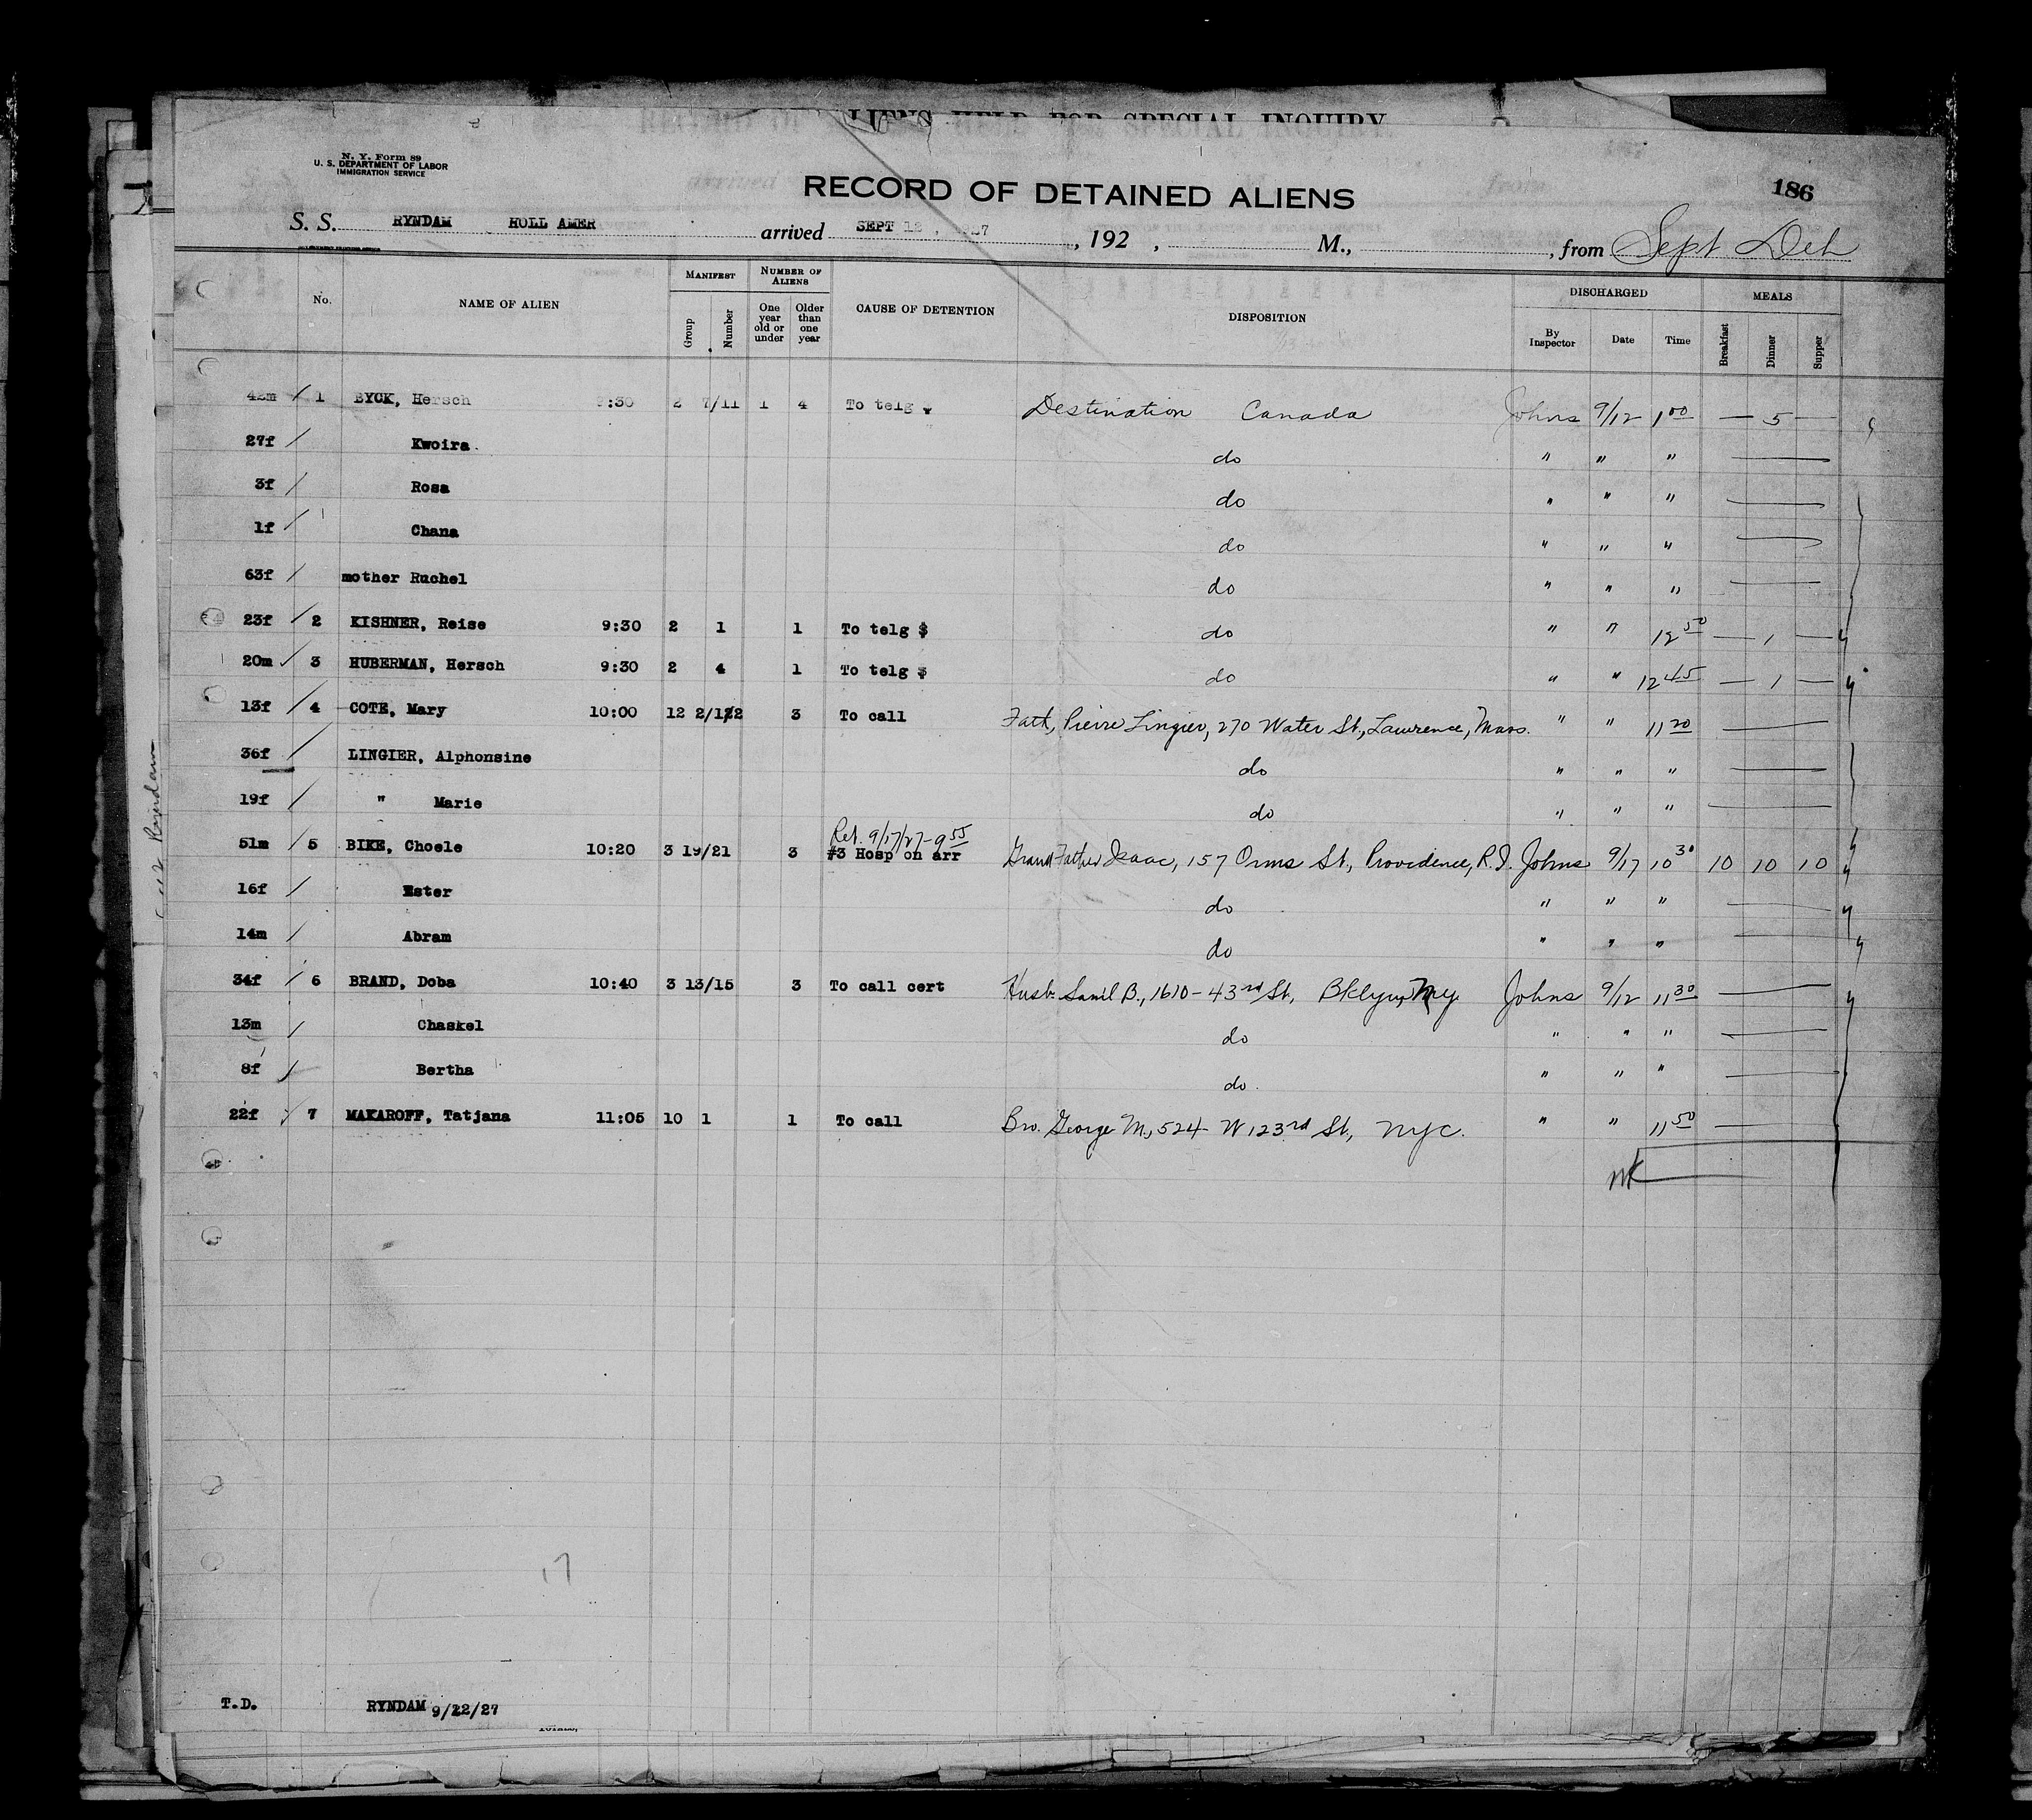 LIENS HELD FOR SPECIAL INQUIRY.
N. Y. Form 89
U. S. DEPARTMENT OF LABOR
IMMIGRATION SERVICE
RECORD OF DETAINED ALIENS
186
S. S. RYNDAM HOLL AMER arrived SEPT 12, 27, 192 , M., from Sept Det
No. NAME OF ALIEN MANIFEST Group Number NUMBER OF ALIENS One year old or under Older than one year CAUSE OF DETENTION DISPOSITION DISCHARGED By Inspector Date Time MEALS Breakfast Dinner Supper
42m / 1 BYCK, Hersch 9:30 2 7/11 1 4 To telg $ Destination Canada Johns 9/12 1 00 — 5 —
27f / Kwoira do " " "
3f / Rosa do " " "
1f / Chana do " " "
63f / mother Ruchel do " " "
23f / 2 KISHNER, Reise 9:30 2 1 1 To telg $ do " " 12 50 — 1 —
20m / 3 HUBERMAN, Hersch 9:30 2 4 1 To telg $ do " " 12 45 — 1 —
13f / 4 COTE, Mary 10:00 12 2/12 3 To call Fath, Pierre Lingier, 270 Water St., Lawrence, Mass. " " 11 20
36f / LINGIER, Alphonsine do " " "
19f / " Marie do " " "
Ret. 9/17/27-9 55
51m / 5 BIKE, Choele 10:20 3 19/21 3 #3 Hosp on arr Grand Father Isaac, 157 Orms St., Providence, R.I. Johns 9/17 10 30 10 10 10
16f / Ester do " " "
14m / Abram do " " "
34f / 6 BRAND, Doba 10:40 3 13/15 3 To call cert Husb. Samil B., 1610-43rd St., Bklyn, Ny. Johns 9/12 11 30
13m / Chaskel do " " "
8f / Bertha do. " " "
22f / 7 MAKAROFF, Tatjana 11:05 10 1 1 To call Bro. George M., 524 W 123rd St., NYC. " " 11 50
MK
17
T.D. RYNDAM 9/12/27
TOTALS,